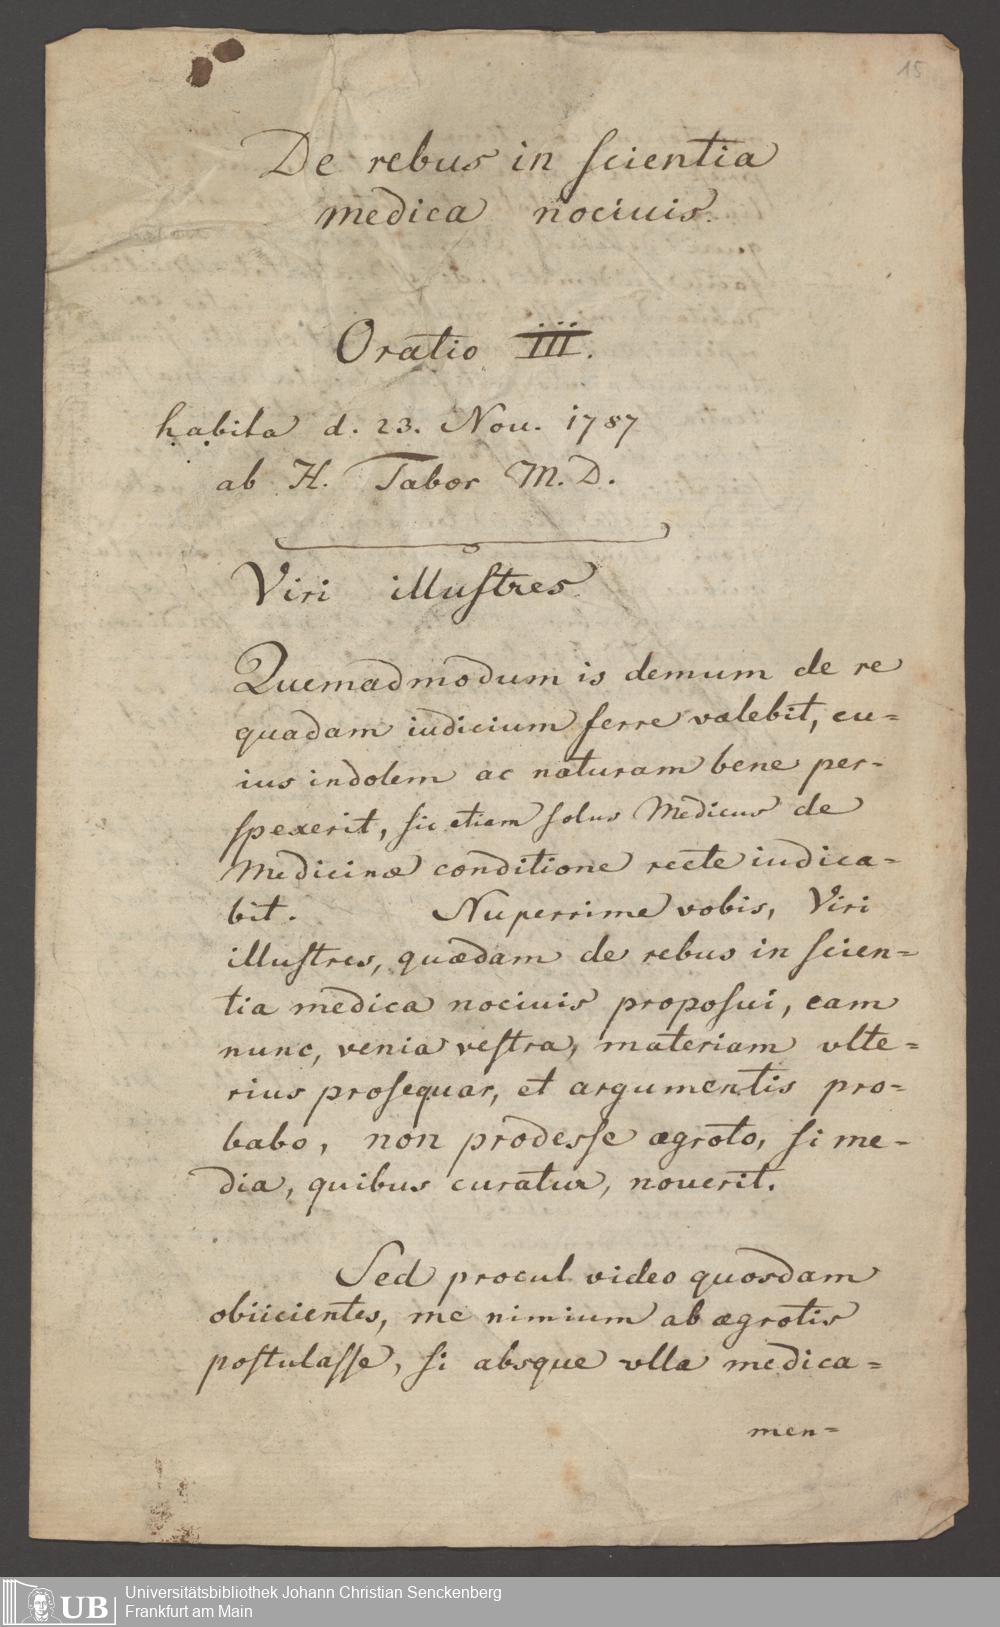 15
De rebus in scientia
medica nociuis.
Oratio III.
habita d. 23. Nou. 1787
ab H. Tabor M. D.
Viri illustres
Quemadmodum is demum de re
quadam iudicium ferre valebit, cu=
ius indolem ac naturam bene per-
spexerit, sic etiam solus Medicus de
Medicinæ conditione recte iudica=
bit. Nuperrime vobis, Viri
illustres, quædam de rebus in scien=
tia medica nociuis proposui, eam
nunc, venia vestra, materiam vlte=
rius prosequar, et argumentis pro=
babo, non prodesse ægroto, si me-
dia, quibus curatur, nouerit.
Sed procul video quosdam
obiicientes, me nimium ab ægrotis
postulasse, si absque vlla medica=
men=
UB
Universitätsbibliothek Johann Christian Senckenberg
Frankfurt am Main